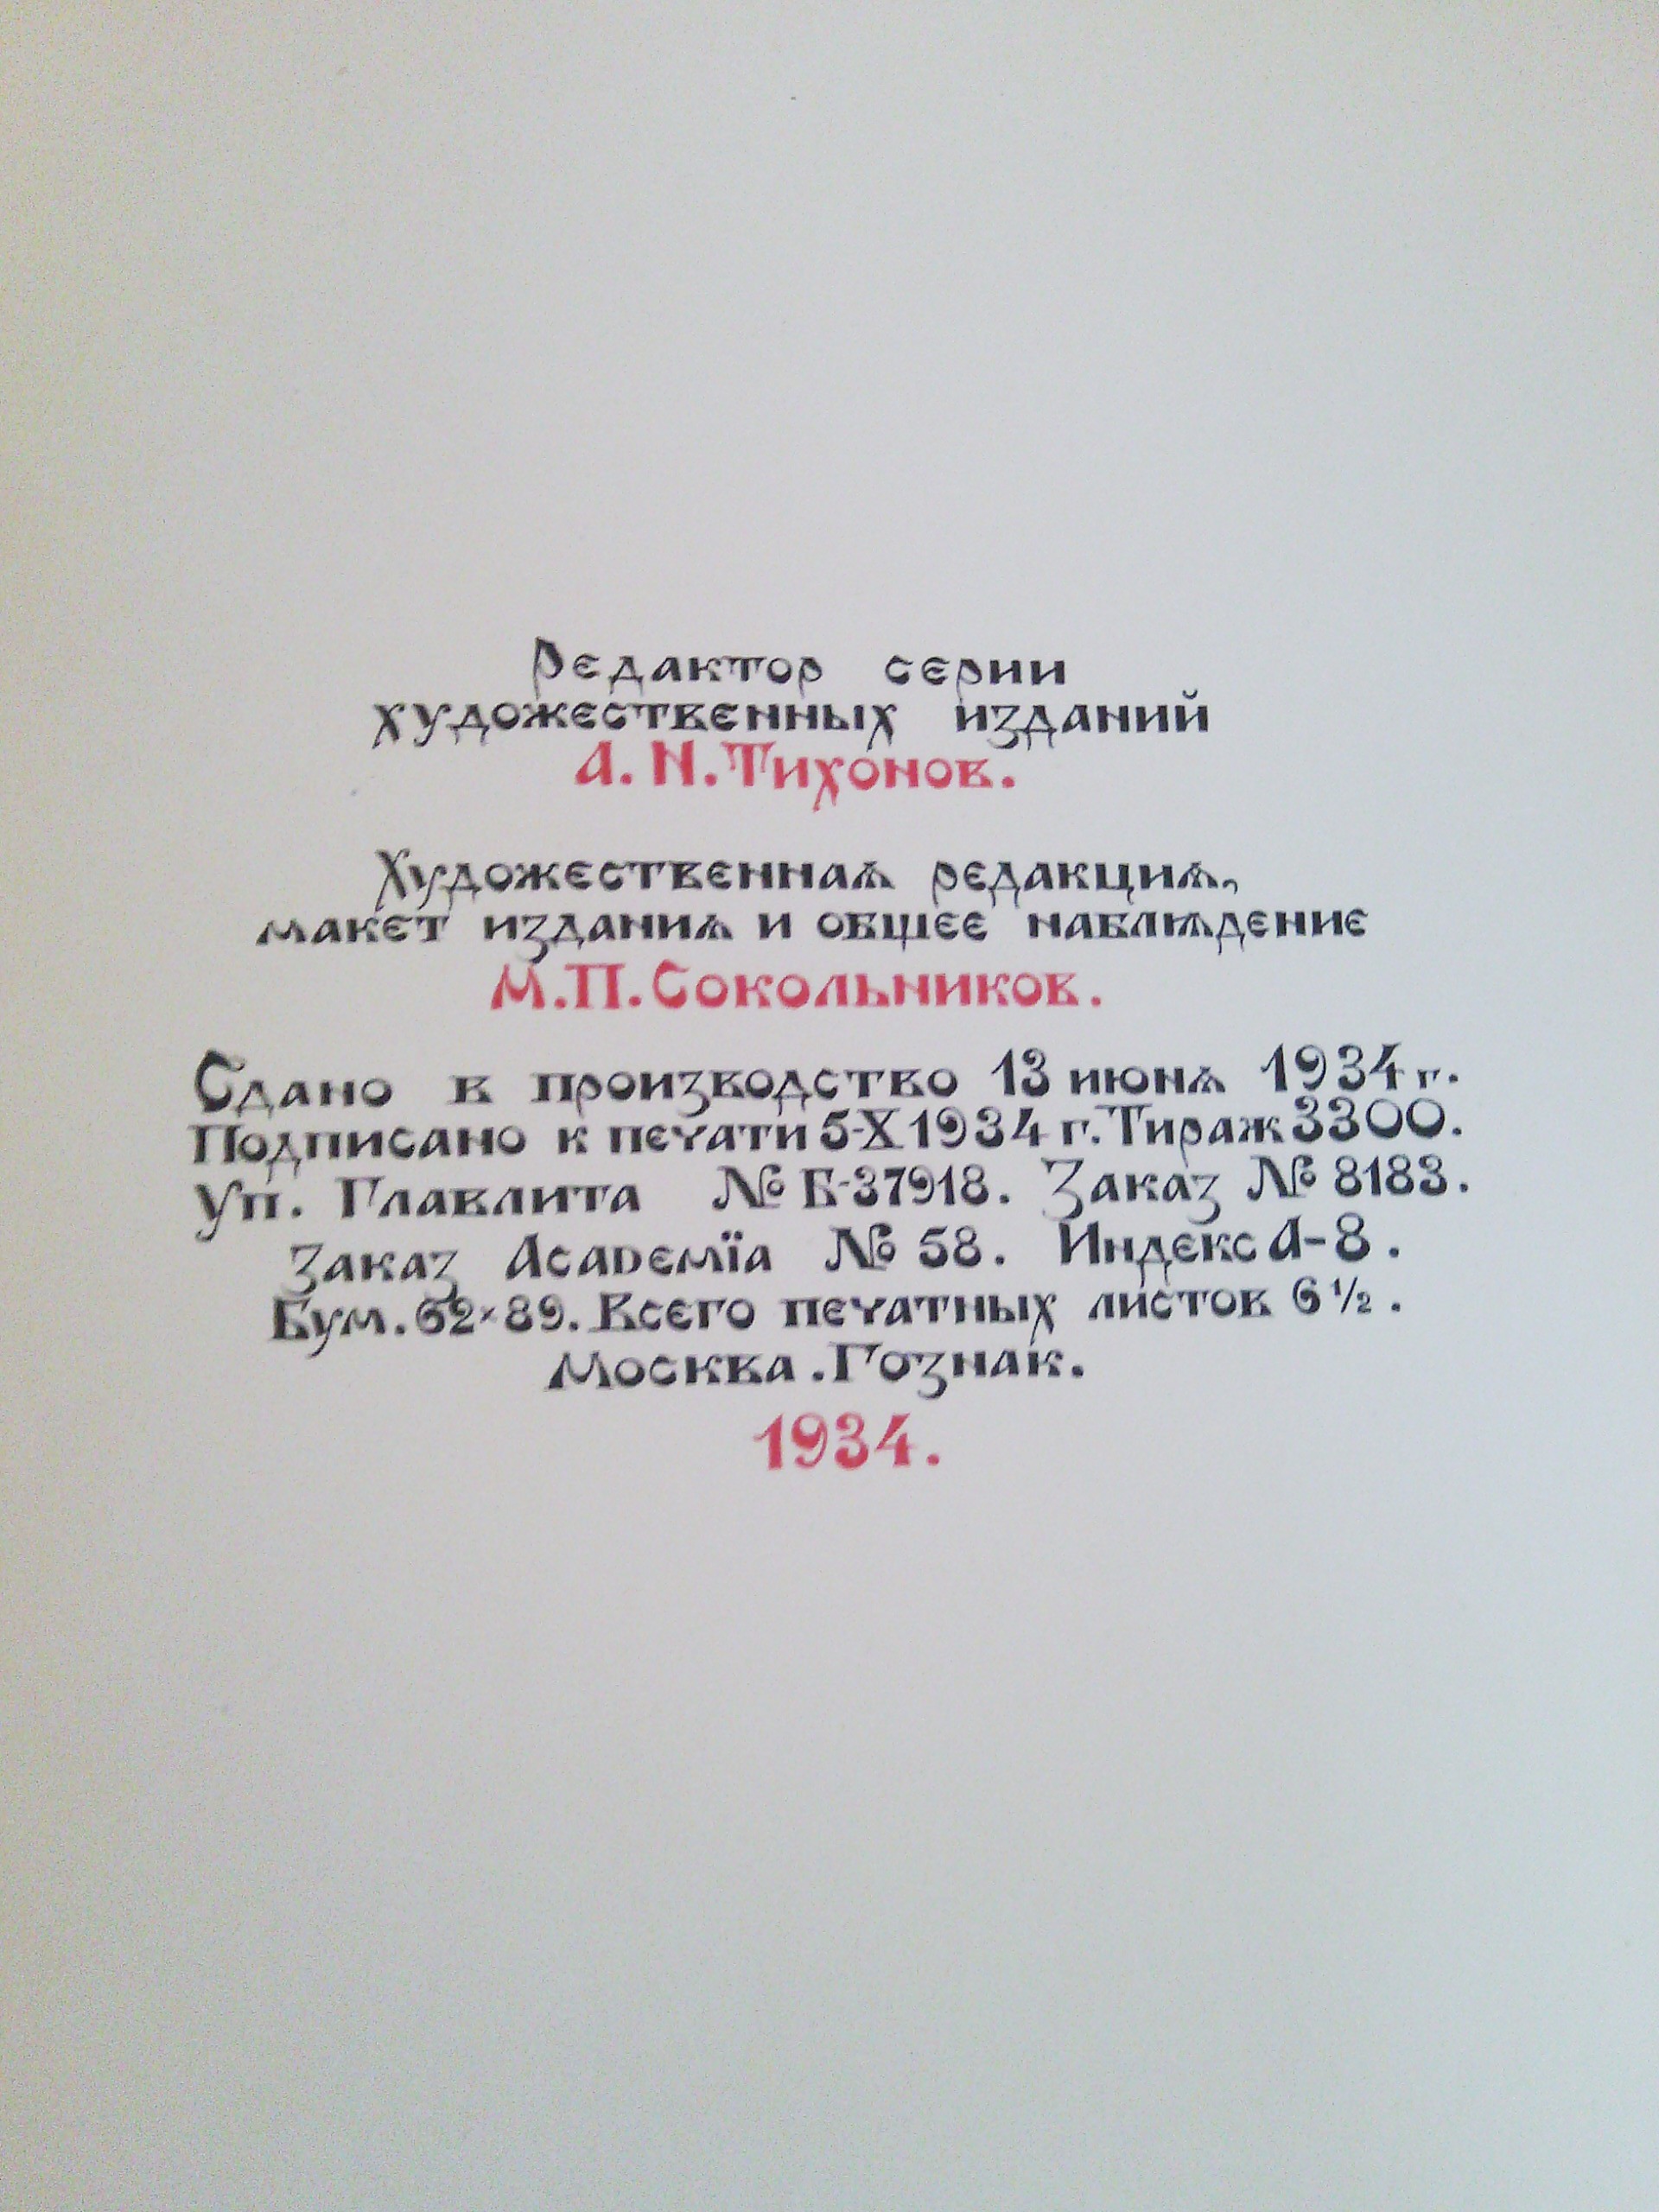 Редактор серии
художественных изданий
А. Н. Тихонов.
Художественная редакция,
макет издания и общее наблюдение
М.П. Сокольников.
Сдано в производство 13 июня 1934 г.
Подписано к печати 5-X 1934 г. Тираж 3300.
Уп. Главлита № Б-37918. Заказ № 8183.
Заказ Academïa № 58. Индекс А-8.
Бум. 62×89. Всего печатных листов 6 ½.
Москва. Гознак.
1934.